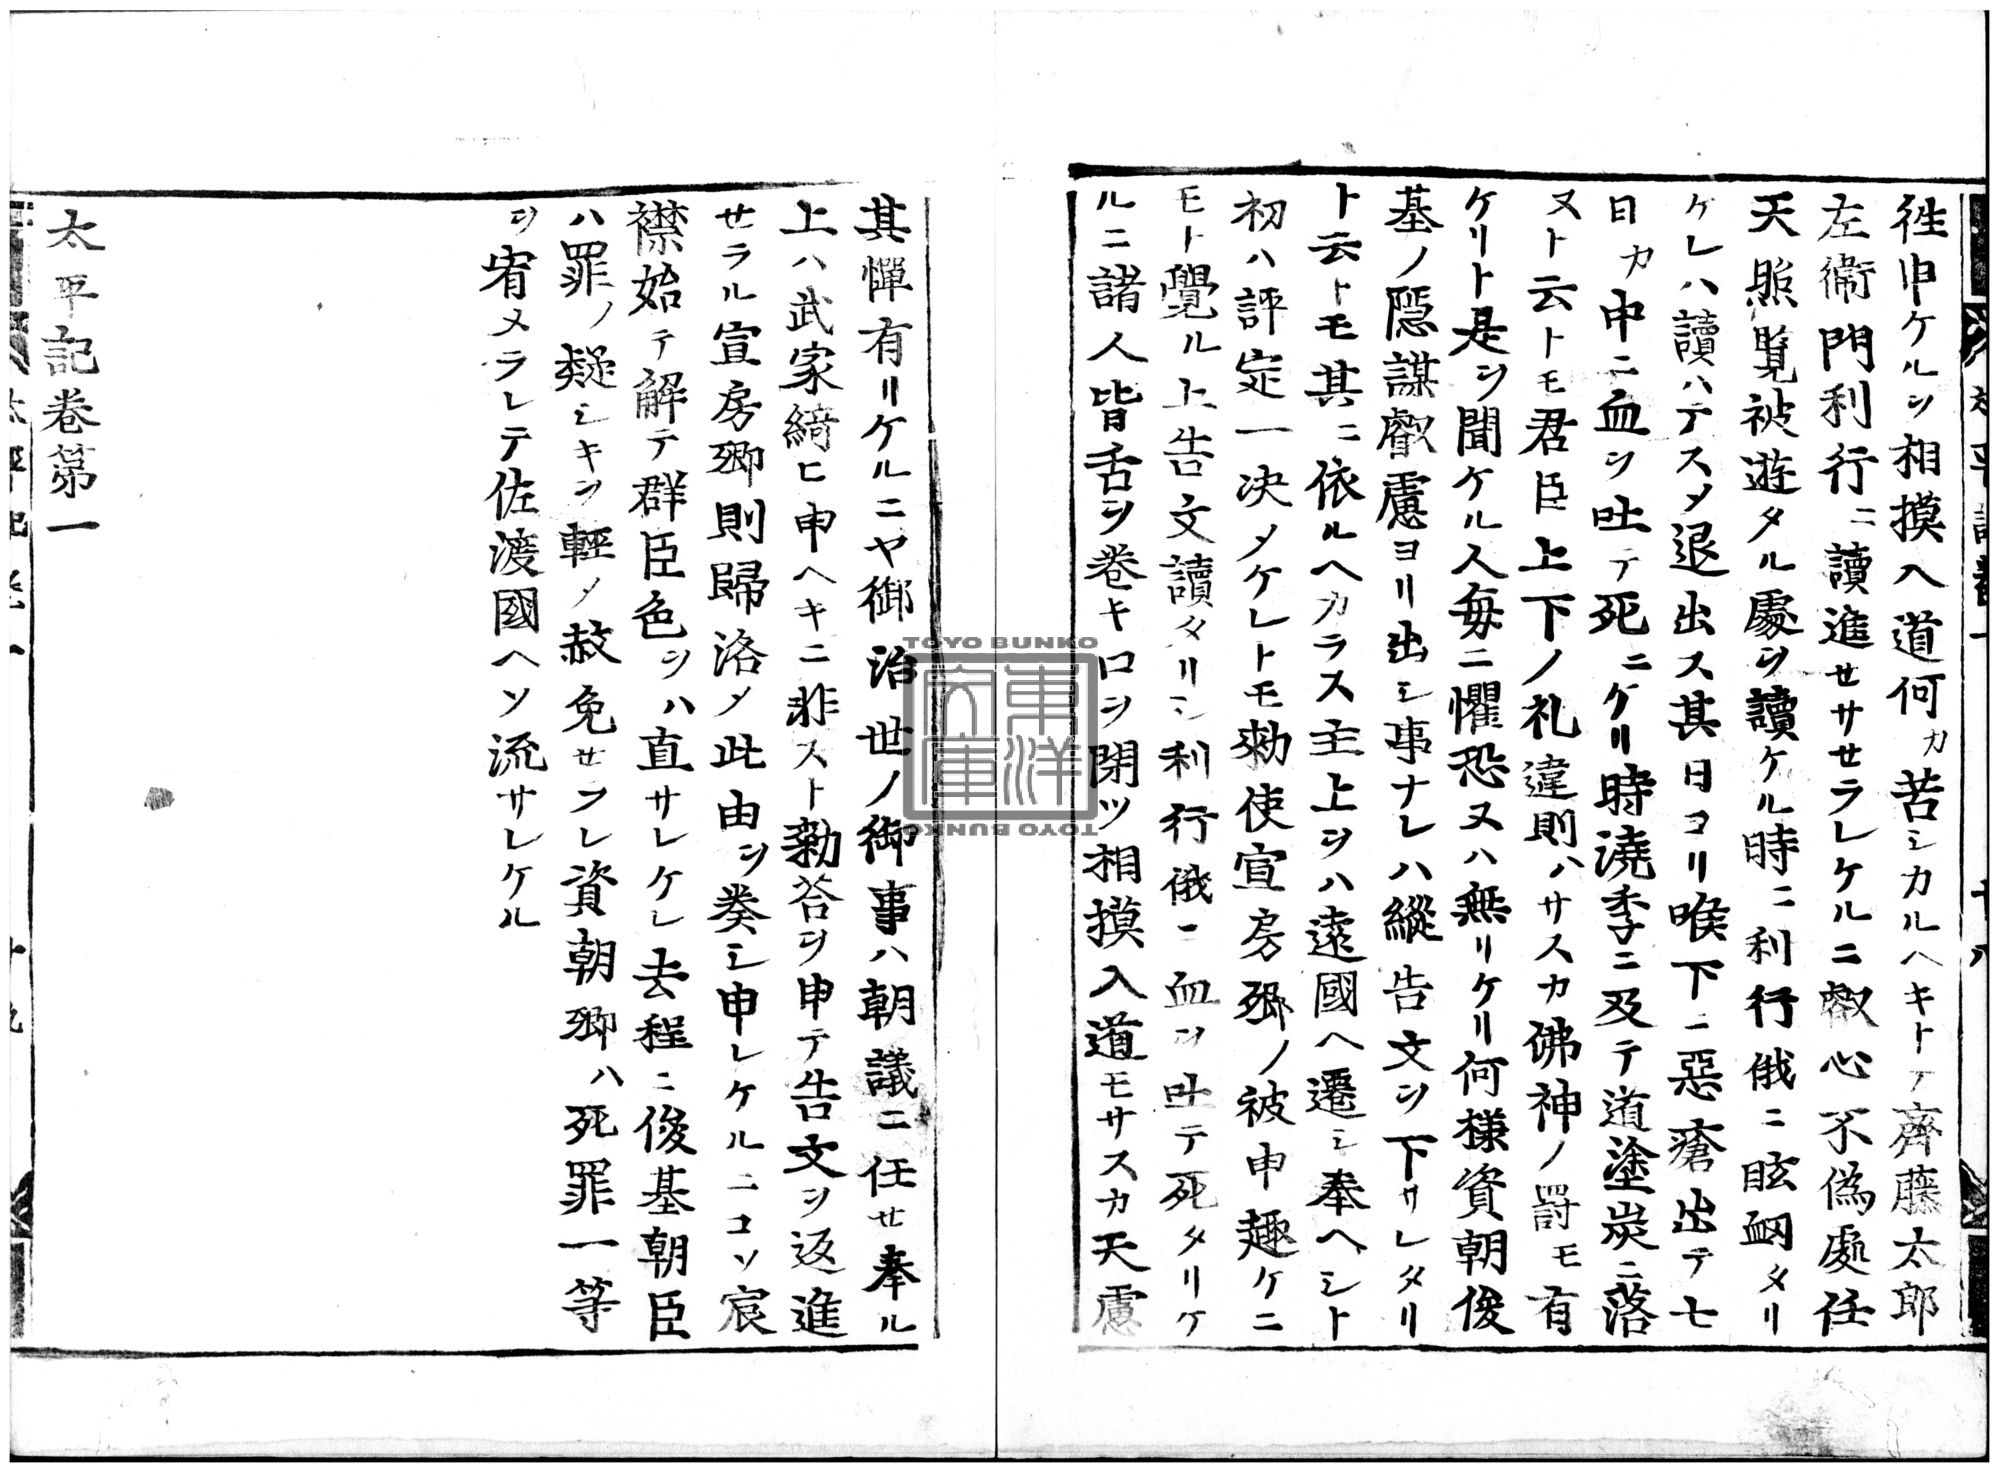 徃申ケルヲ相摸入道何カ苦シカルヘキトテ齊藤太郎
左衛門利行ニ讀進セサセラレケルニ叡心不偽處任
天照覧被遊タル處ヲ讀ケル時ニ利行俄ニ眩衂タリ
ケレハ讀ハテスメ退出ス其日ヨリ喉下ニ惡瘡出テ七
日カ中ニ血ヲ吐テ死ニケリ時澆季ニ及テ道塗炭ニ落
ヌト云トモ君臣上下ノ礼違則ハサスカ佛神ノ罸モ有
ケリト是ヲ聞ケル人毎ニ懼恐ヌハ無リケリ何様資朝俊
基ノ隠謀叡慮ヨリ出シ事ナレハ縦告文ヲ下サレタリ
ト云トモ其ニ依ルヘカラス主上ヲハ遠國ヘ遷シ奉ヘシト
初ハ評定一决メケレトモ勅使宣房卿ノ被申趣ケニ
モト覺ル上告文讀タリシ利行俄ニ血ヲ吐テ死タリケ
ルニ諸人皆舌ヲ巻キ口ヲ閉ツ相摸入道モサスカ天慮
其憚有リケルニヤ御治世ノ御事ハ朝議ニ任せ奉ル
上ハ武家綺ヒ申ヘキニ非スト勅荅ヲ申テ告文ヲ返進
せラル宣房卿則歸洛メ此由ヲ奏シ申レケルニコソ宸
襟始テ解テ群臣色ヲハ直サレケレ去程ニ俊基朝臣
ハ罪ノ疑シキヲ輕メ赦免せラレ資朝卿ハ死罪一等
ヲ宥メラレテ佐渡國ヘソ流サレケル
太平記巻第一
TOYO BUNKO
東洋文庫
TOYO BUNKO